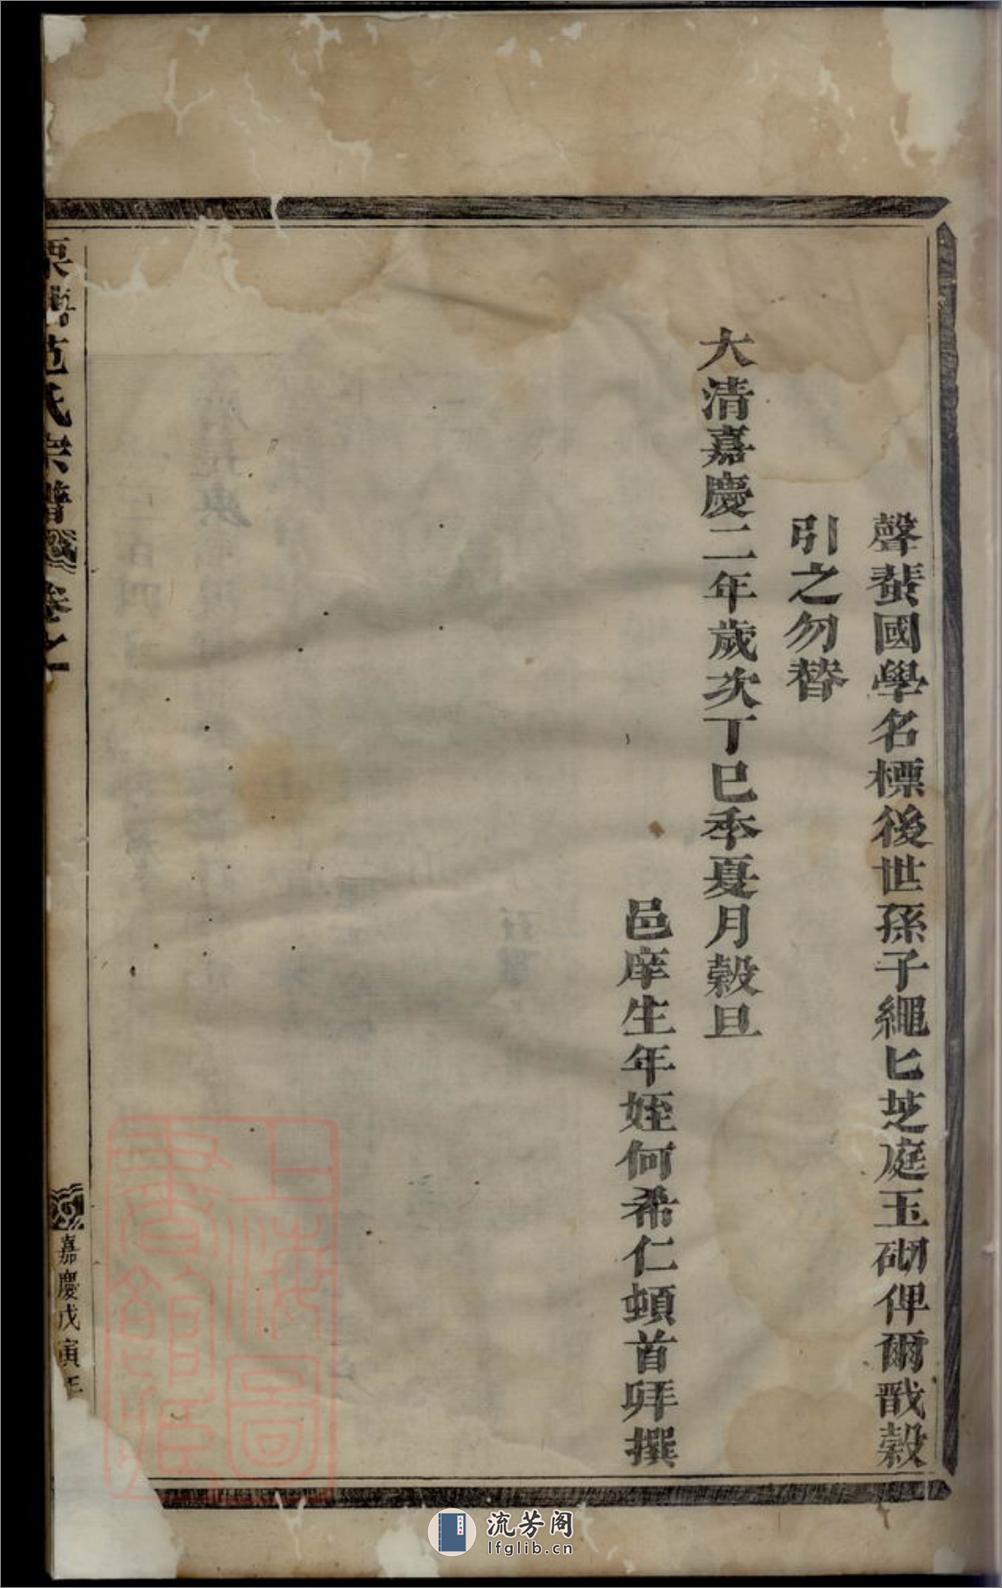 聲蜚國學名標後世孫子繩匕芝庭玉砌俾爾戩穀
引之勿替
大清嘉慶二年歲次丁巳季夏月穀旦
邑庠生年姪何希仁頓首拜撰
范氏宗譜 卷之一
嘉慶戊寅年
上海圖書館藏
流芳阁
lfglib.cn